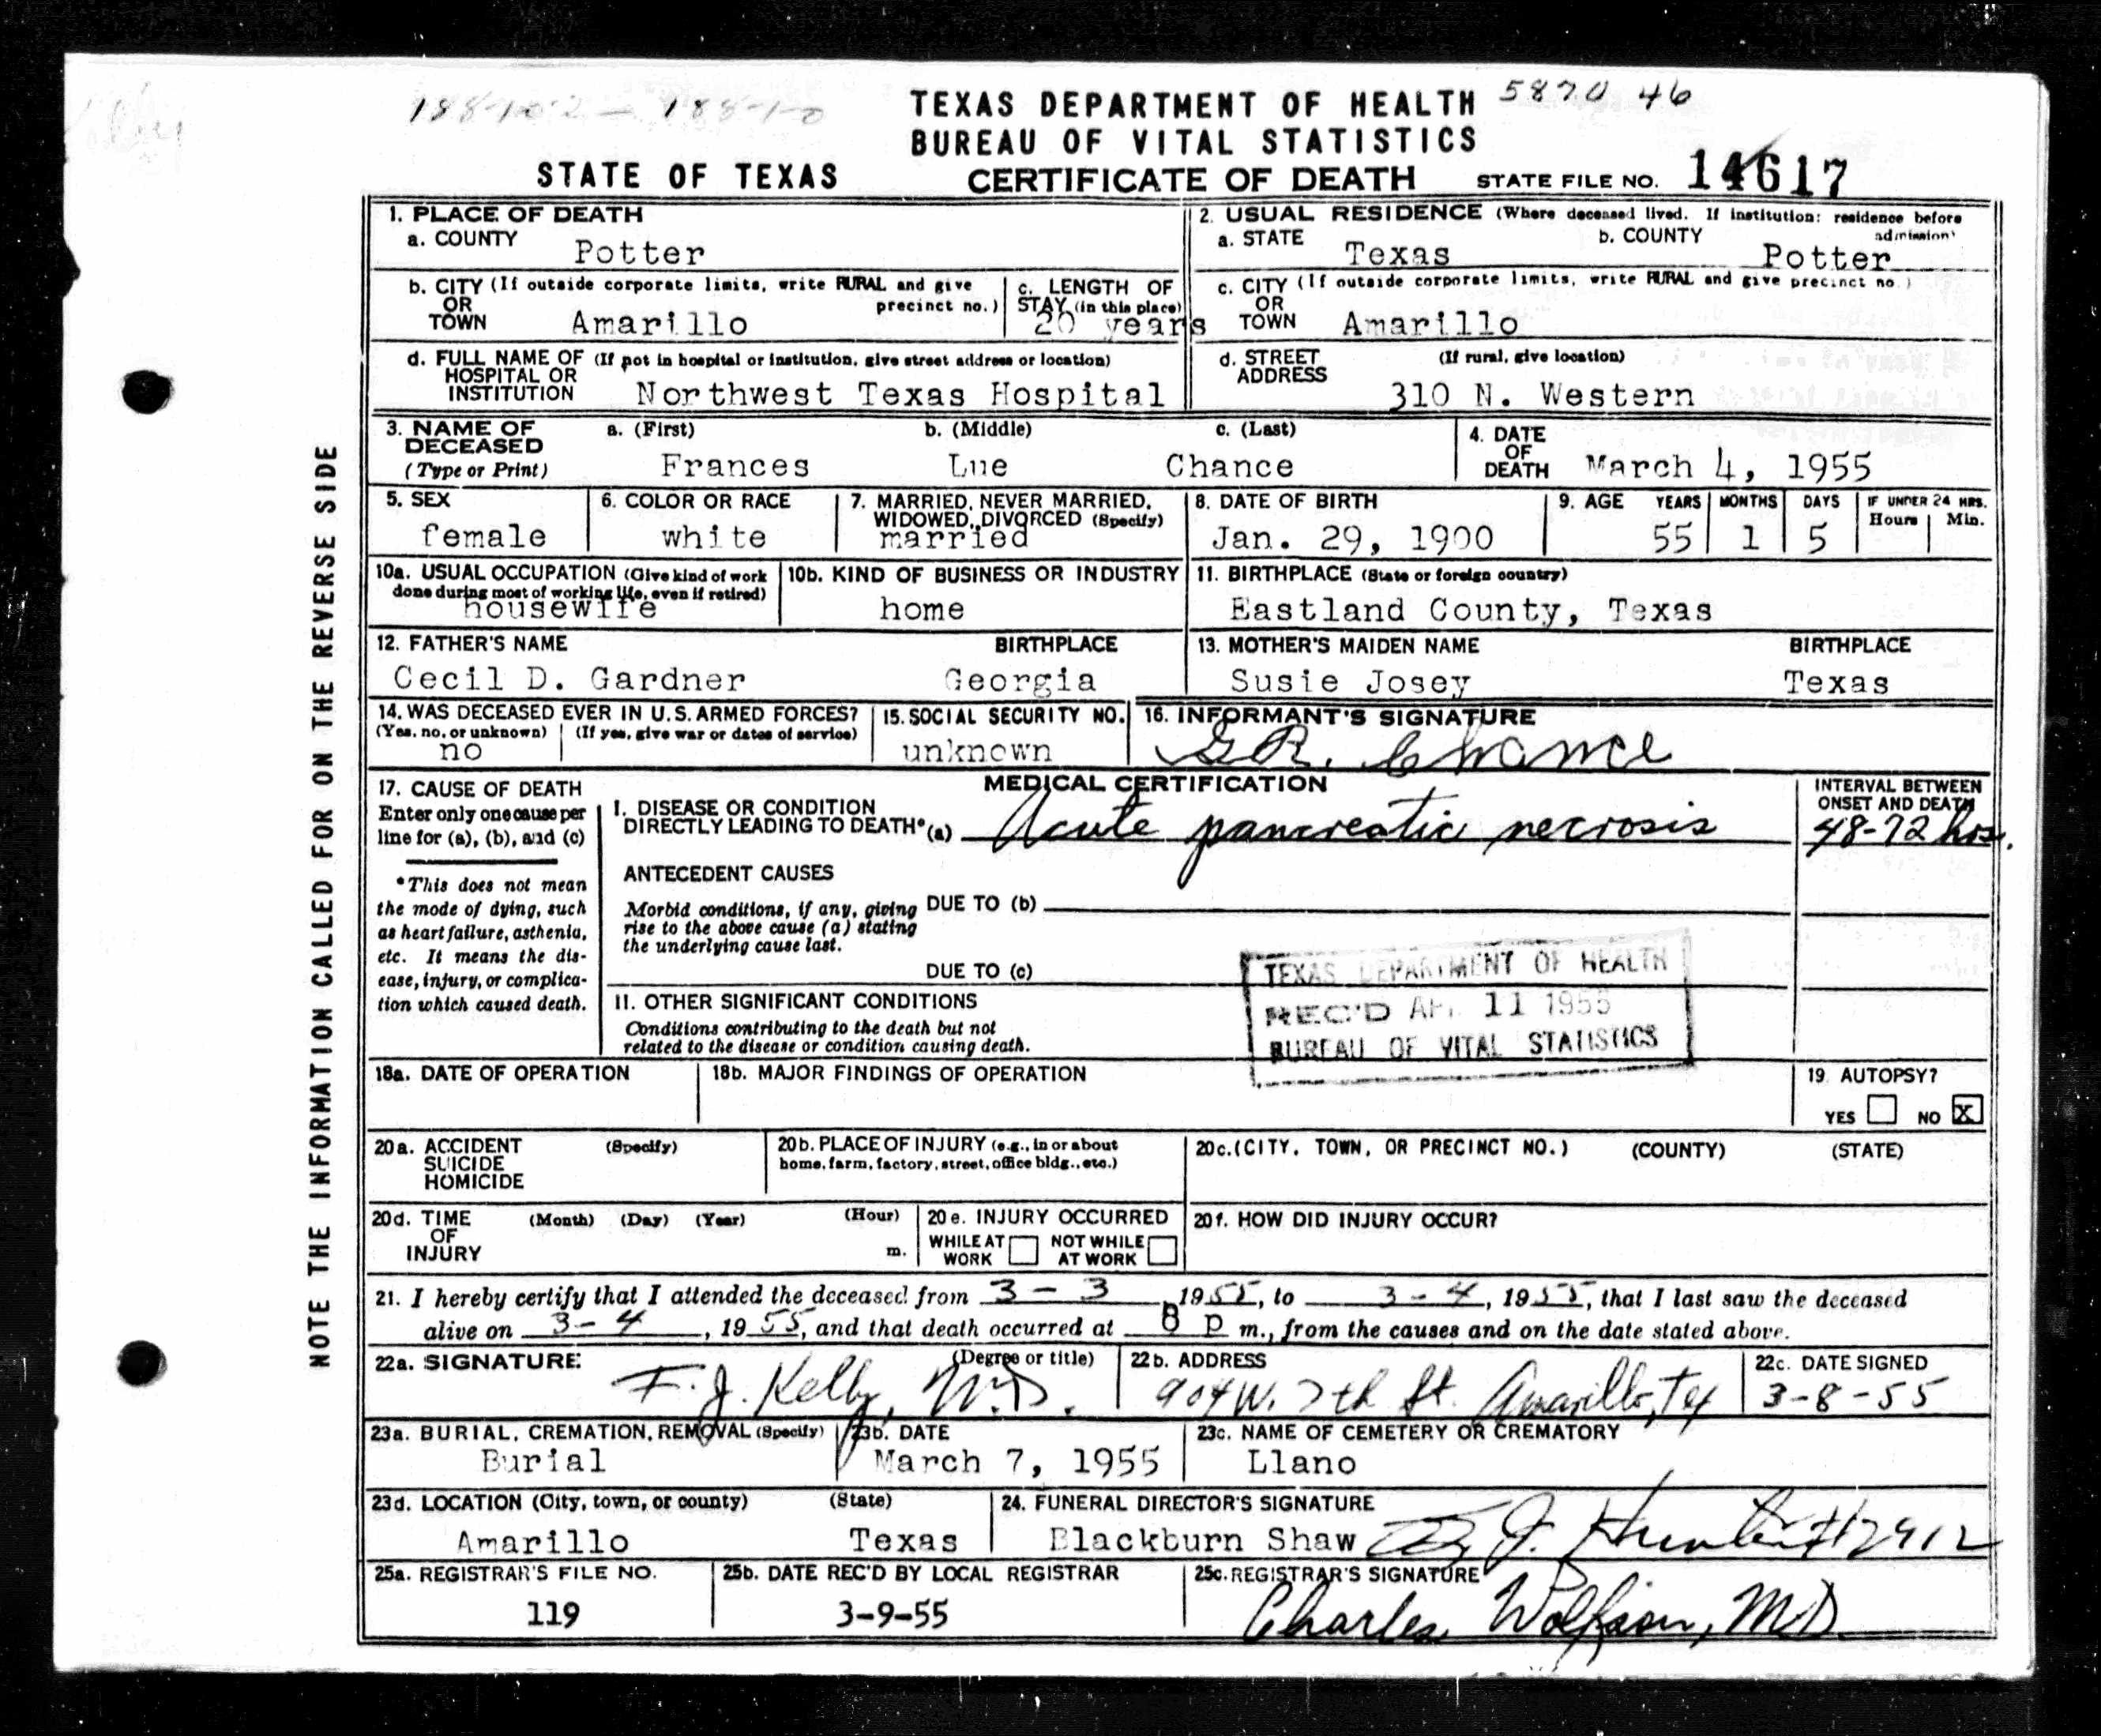 5870 46
TEXAS DEPARTMENT OF HEALTH
BUREAU OF VITAL STATISTICS
STATE OF TEXAS CERTIFICATE OF DEATH STATE FILE NO. 14617
NOTE THE INFORMATION CALLED FOR ON THE REVERSE SIDE
1. PLACE OF DEATH
a. COUNTY Potter
2. USUAL RESIDENCE (Where deceased lived. If institution: residence before admission)
a. STATE Texas b. COUNTY Potter
b. CITY (If outside corporate limits, write RURAL and give precinct no.)
OR
TOWN Amarillo
c. LENGTH OF
STAY (in this place)
20 years
c. CITY (If outside corporate limits, write RURAL and give precinct no.)
OR
TOWN Amarillo
d. FULL NAME OF (If not in hospital or institution, give street address or location)
HOSPITAL OR
INSTITUTION Northwest Texas Hospital
d. STREET (If rural, give location)
ADDRESS 310 N. Western
3. NAME OF
DECEASED
(Type or Print)
a. (First) b. (Middle) c. (Last)
Frances Lue Chance
4. DATE
OF
DEATH March 4, 1955
5. SEX
female
6. COLOR OR RACE
white
7. MARRIED, NEVER MARRIED,
WIDOWED, DIVORCED (Specify)
married
8. DATE OF BIRTH
Jan. 29, 1900
9. AGE YEARS MONTHS DAYS IF UNDER 24 HRS.
Hours Min.
55 1 5
10a. USUAL OCCUPATION (Give kind of work
done during most of working life, even if retired)
housewife
10b. KIND OF BUSINESS OR INDUSTRY
home
11. BIRTHPLACE (State or foreign country)
Eastland County, Texas
12. FATHER'S NAME BIRTHPLACE
Cecil D. Gardner Georgia
13. MOTHER'S MAIDEN NAME BIRTHPLACE
Susie Josey Texas
14. WAS DECEASED EVER IN U.S. ARMED FORCES?
(Yes, no, or unknown) (If yes, give war or dates of service)
no
15. SOCIAL SECURITY NO.
unknown
16. INFORMANT'S SIGNATURE
G.R. Chance
17. CAUSE OF DEATH
Enter only one cause per
line for (a), (b), and (c)
*This does not mean
the mode of dying, such
as heart failure, asthenia,
etc. It means the dis-
ease, injury, or complica-
tion which caused death.
MEDICAL CERTIFICATION
I. DISEASE OR CONDITION
DIRECTLY LEADING TO DEATH* (a) Acute pancreatic necrosis
INTERVAL BETWEEN
ONSET AND DEATH
48-72 hrs.
ANTECEDENT CAUSES
Morbid conditions, if any, giving
rise to the above cause (a) stating
the underlying cause last.
DUE TO (b)
DUE TO (c)
TEXAS DEPARTMENT OF HEALTH
REC'D APR 11 1955
BUREAU OF VITAL STATISTICS
II. OTHER SIGNIFICANT CONDITIONS
Conditions contributing to the death but not
related to the disease or condition causing death.
18a. DATE OF OPERATION
18b. MAJOR FINDINGS OF OPERATION
19. AUTOPSY?
YES NO X
20a. ACCIDENT (Specify)
SUICIDE
HOMICIDE
20b. PLACE OF INJURY (e.g., in or about
home, farm, factory, street, office bldg., etc.)
20c. (CITY, TOWN, OR PRECINCT NO.) (COUNTY) (STATE)
20d. TIME (Month) (Day) (Year) (Hour)
OF
INJURY m.
20e. INJURY OCCURRED
WHILE AT WORK NOT WHILE AT WORK
20f. HOW DID INJURY OCCUR?
21. I hereby certify that I attended the deceased from 3-3, 1955, to 3-4, 1955, that I last saw the deceased
alive on 3-4, 1955, and that death occurred at 8 p m., from the causes and on the date stated above.
22a. SIGNATURE (Degree or title)
F.J. Kelly, M.D.
22b. ADDRESS
904 W. 7th St. Amarillo, Tex
22c. DATE SIGNED
3-8-55
23a. BURIAL, CREMATION, REMOVAL (Specify)
Burial
23b. DATE
March 7, 1955
23c. NAME OF CEMETERY OR CREMATORY
Llano
23d. LOCATION (City, town, or county) (State)
Amarillo Texas
24. FUNERAL DIRECTOR'S SIGNATURE
Blackburn Shaw By J. Hunter #2912
25a. REGISTRAR'S FILE NO.
119
25b. DATE REC'D BY LOCAL REGISTRAR
3-9-55
25c. REGISTRAR'S SIGNATURE
Charles Wolfson, MD